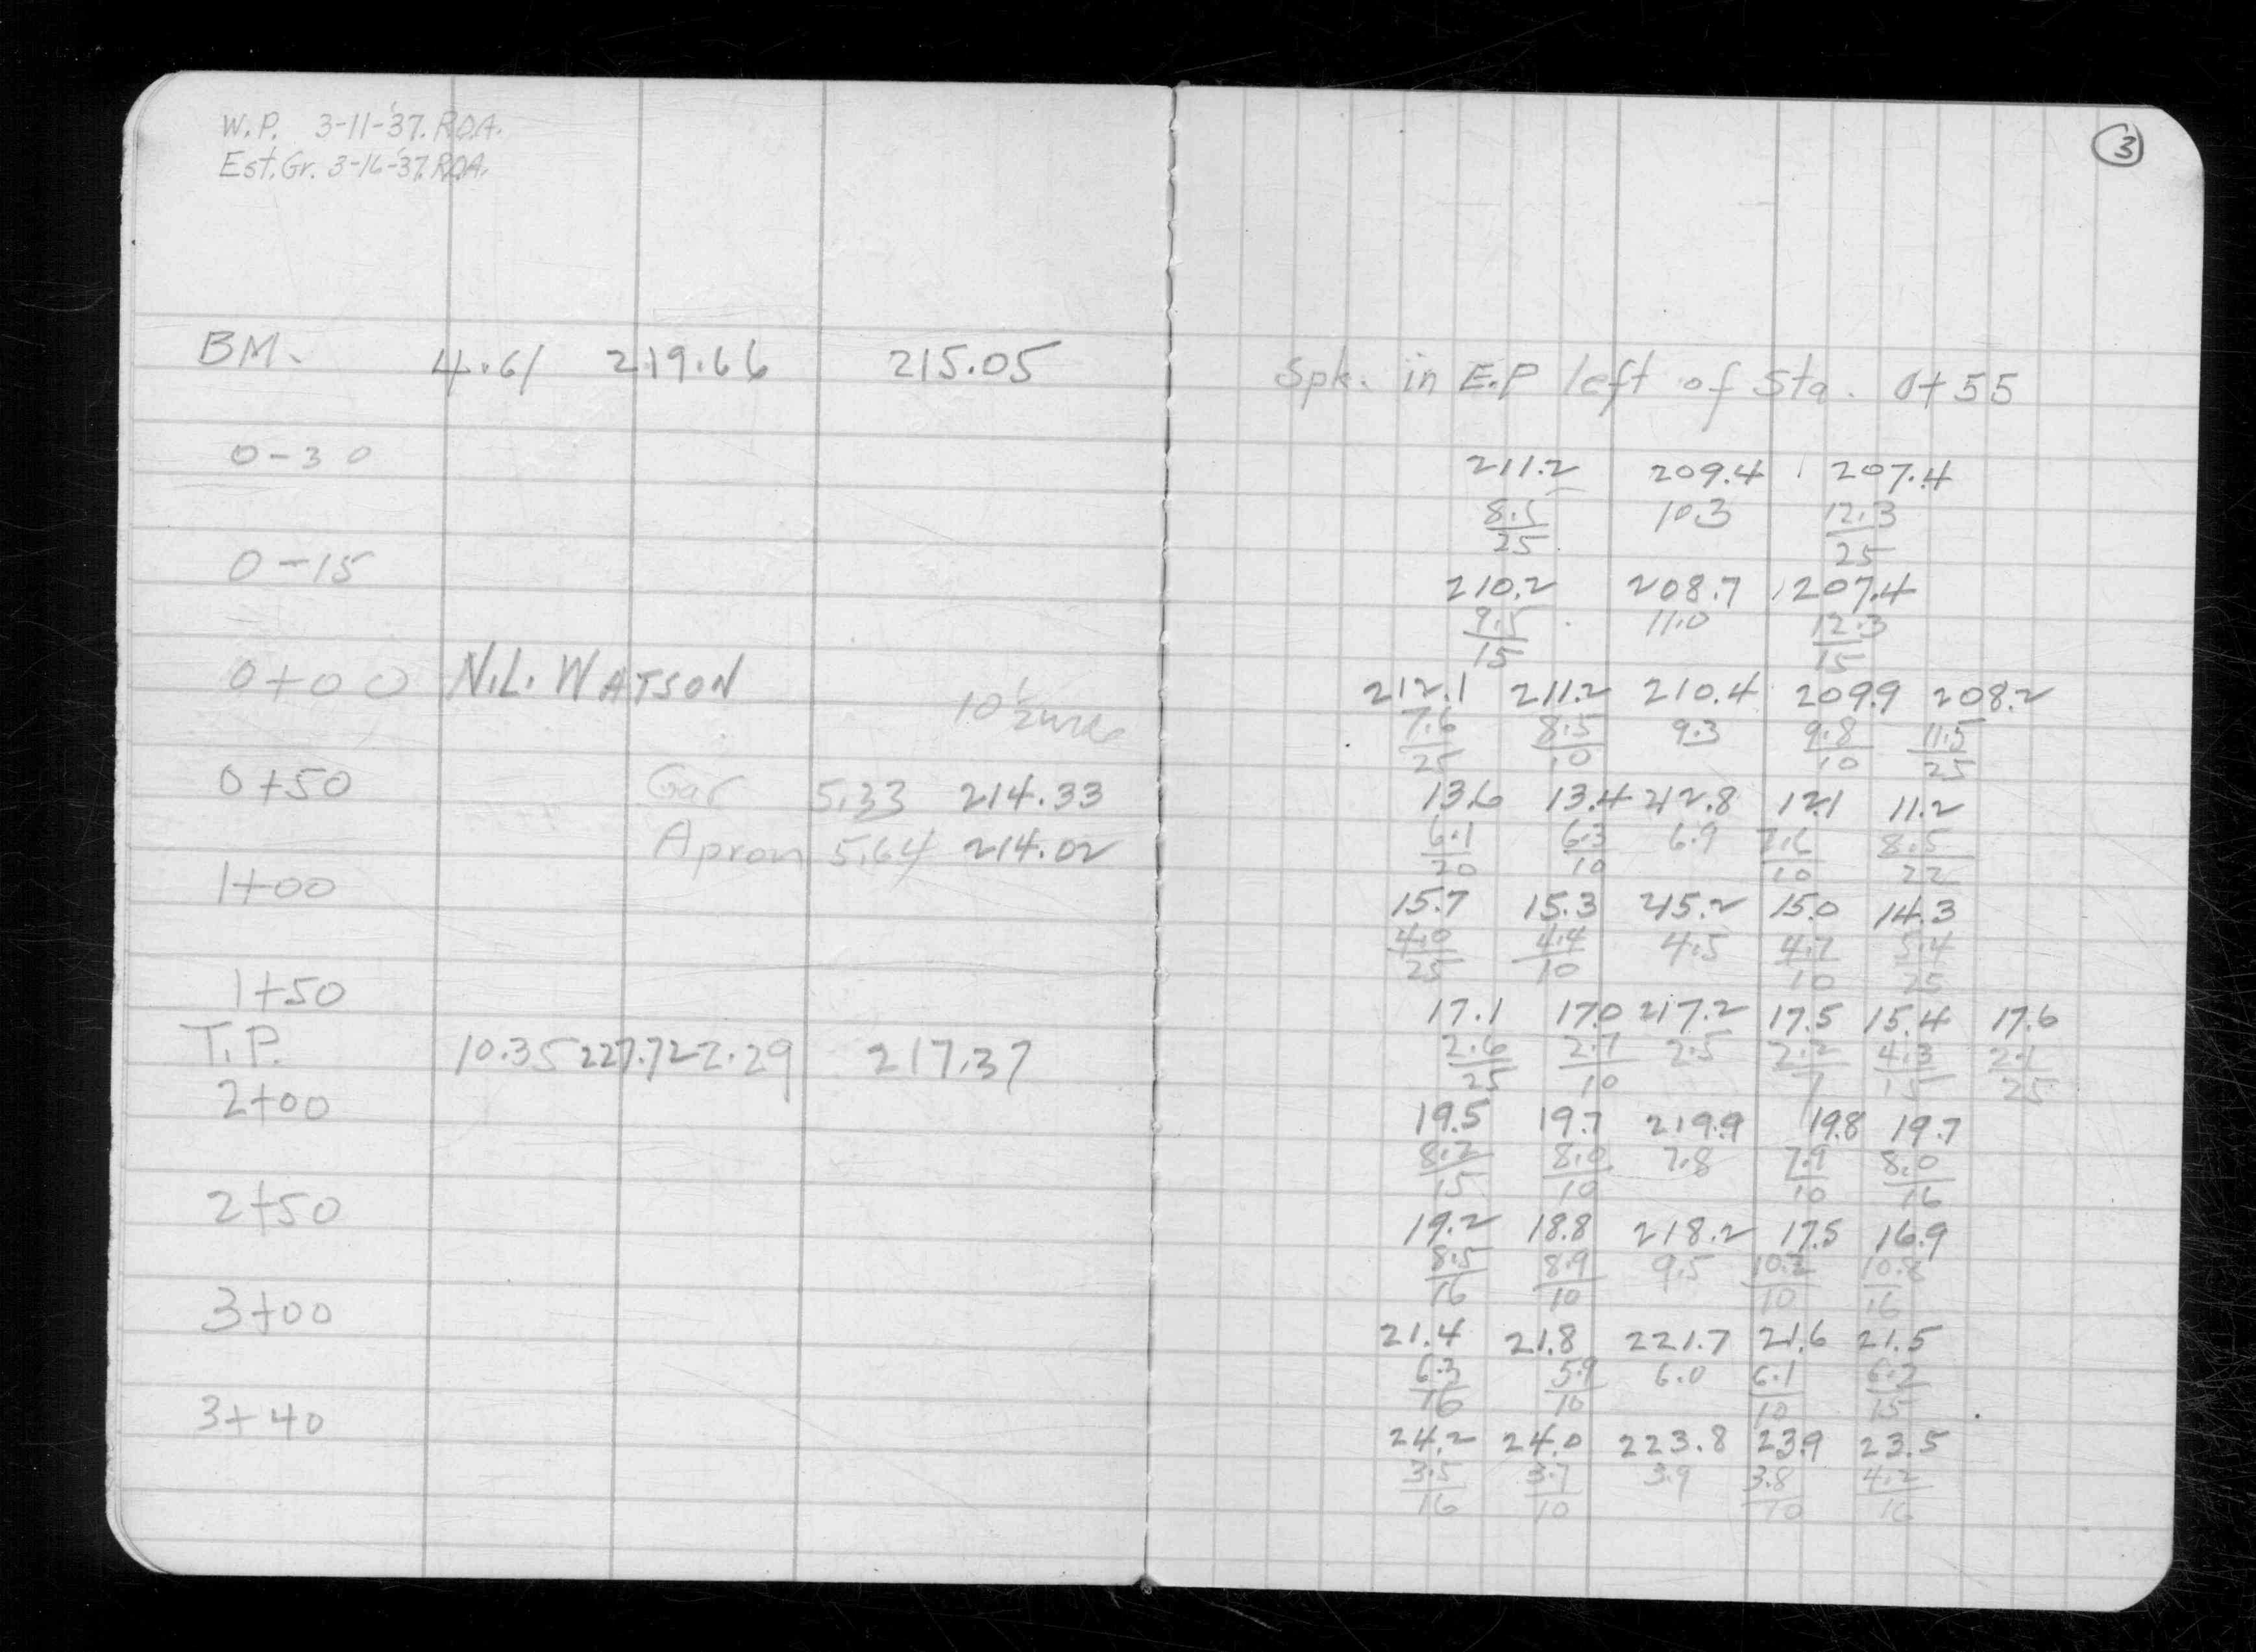 W.P. 3-11-'37. R.O.A.
Est. Gr. 3-16-'37. R.O.A.
BM. 4.61 219.66 215.05
0-30
0-15
0+00 N.L. WATSON
10 1/2
0+50 Gar 5.33 214.33
Apron 5.64 214.02
1+00
1+50
T.P. 10.35 227.72 2.29 217.37
2+00
2+50
3+00
3+40
3
Spk. in E.P left of Sta. 0+55
211.2 209.4 207.4
8.5 10.3 12.3
25 25
210.2 208.7 207.4
9.5 11.0 12.3
15 15
212.1 211.2 210.4 209.9 208.2
7.6 8.5 9.3 9.8 11.5
25 10 10 25
13.6 13.4 212.8 12.1 11.2
6.1 6.3 6.9 7.6 8.5
20 10 10 22
15.7 15.3 215.2 15.0 14.3
4.0 4.4 4.5 4.7 5.4
25 10 10 25
17.1 17.0 217.2 17.5 15.4 17.6
2.6 2.7 2.5 2.2 4.3 2.1
25 10 7 15 25
19.5 19.7 219.9 19.8 19.7
8.2 8.0 7.8 7.9 8.0
15 10 10 16
19.2 18.8 218.2 17.5 16.9
8.5 8.9 9.5 10.2 10.8
16 10 10 16
21.4 21.8 221.7 21.6 21.5
6.3 5.9 6.0 6.1 6.2
16 10 10 15
24.2 24.0 223.8 23.9 23.5
3.5 3.7 3.9 3.8 4.2
16 10 10 16